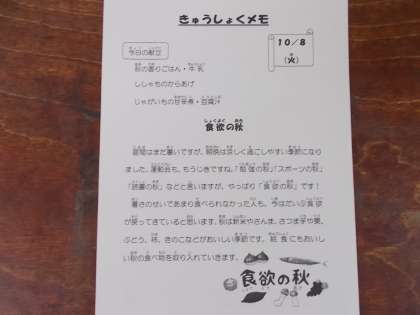 きゅうしょくメモ
10/8
(火)
今日の献立
秋の香りごはん・牛乳
ししゃものからあげ
じゃがいもの甘辛煮・豆腐汁
食欲の秋
昼間はまだ暑いですが、朝晩は涼しく過ごしやすい季節になり
ました。運動会も、もうじきですね。「勉強の秋」「スポーツの秋」
「読書の秋」などと言いますが、やっぱり「食欲の秋」です!
暑さのせいであまり食べられなかった人も、今はだいぶ食欲
が戻ってきていると思います。秋は新米やさんま、さつま芋や栗、
ぶどう、柿、きのこなどがおいしい季節です。給食にもおいし
い秋の食べ物を取り入れていきます。
食欲の秋